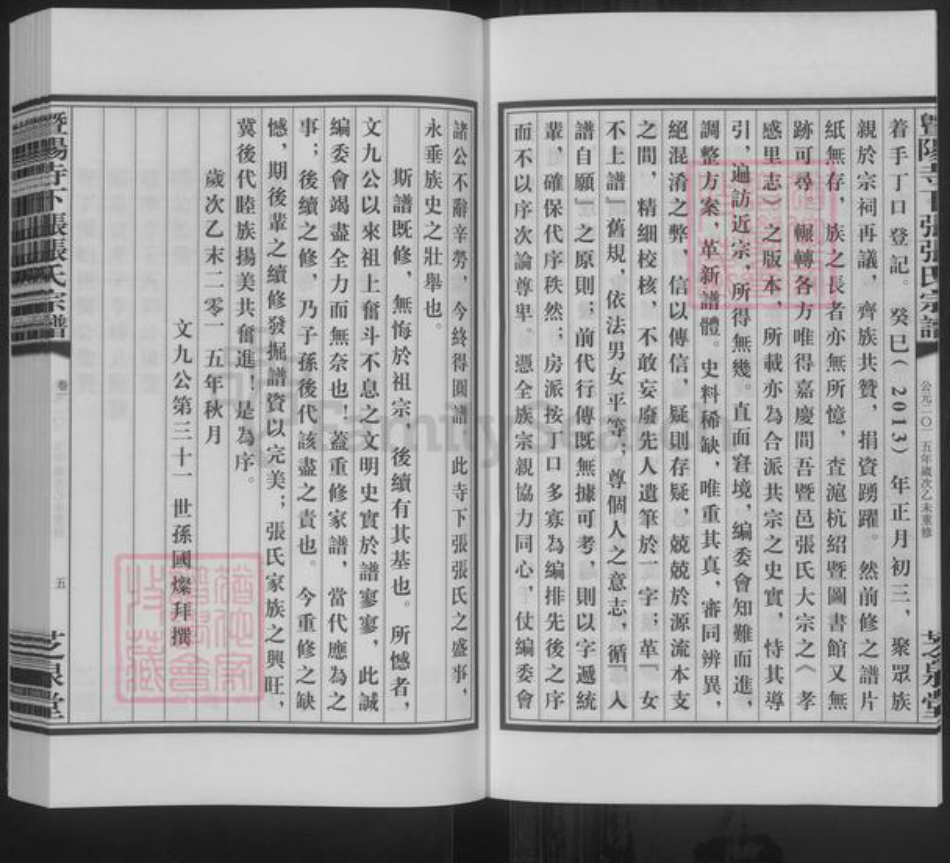 着手丁口登記。癸巳(2013)年正月初三,聚眾族
親於宗祠再議,齊族共贊,捐資踴躍。然前修之譜片
紙無存,族之長者亦無所憶,查滬杭紹暨圖書館又無
跡可尋。輾轉各方唯得嘉慶間吾暨邑張氏大宗之《孝
感里志》之版本,所載亦為合派共宗之史實,恃其導
引,遍訪近宗,所得無幾。直面窘境,編委會知難而進,
調整方案,革新譜體。史料稀缺,唯重其真,審同辨異,
絕混淆之弊,信以傳信,疑則存疑,兢兢於源流本支
之間,精細校核,不敢妄廢先人遺筆於一字;革「女
不上譜」舊規,依法男女平等;尊個人之意志,循「入
譜自願」之原則;前代行傳既無據可考,則以字遞統
輩,確保代序秩然;房派按丁口多寡為編排先後之序
而不以序次論尊卑。憑全族宗親協力同心,仗編委會
諸公不辭辛勞,今終得圓譜,此寺下張張氏之盛事,
永垂族史之壯舉也。
斯譜既修,無悔於祖宗,後續有其基也。所憾者,
文九公以來祖上奮斗不息之文明史實於譜寥寥,此誠
編委會竭盡全力而無奈也!蓋重修家譜,當代應為之
事;後續之修,乃子孫後代該盡之責也。今重修之缺
憾,期後輩之續修發掘譜資以完美;張氏家族之興旺,
冀後代睦族揚美共奮進!是為序。
歲次乙未二零一五年秋月
文九公第三十一世孫國燦拜撰
暨陽寺下張張氏宗譜
卷一
五
芝泉堂
暨陽寺下張張氏宗譜
公元二〇一五年歲次乙未重修
芝泉堂
FamilySearch